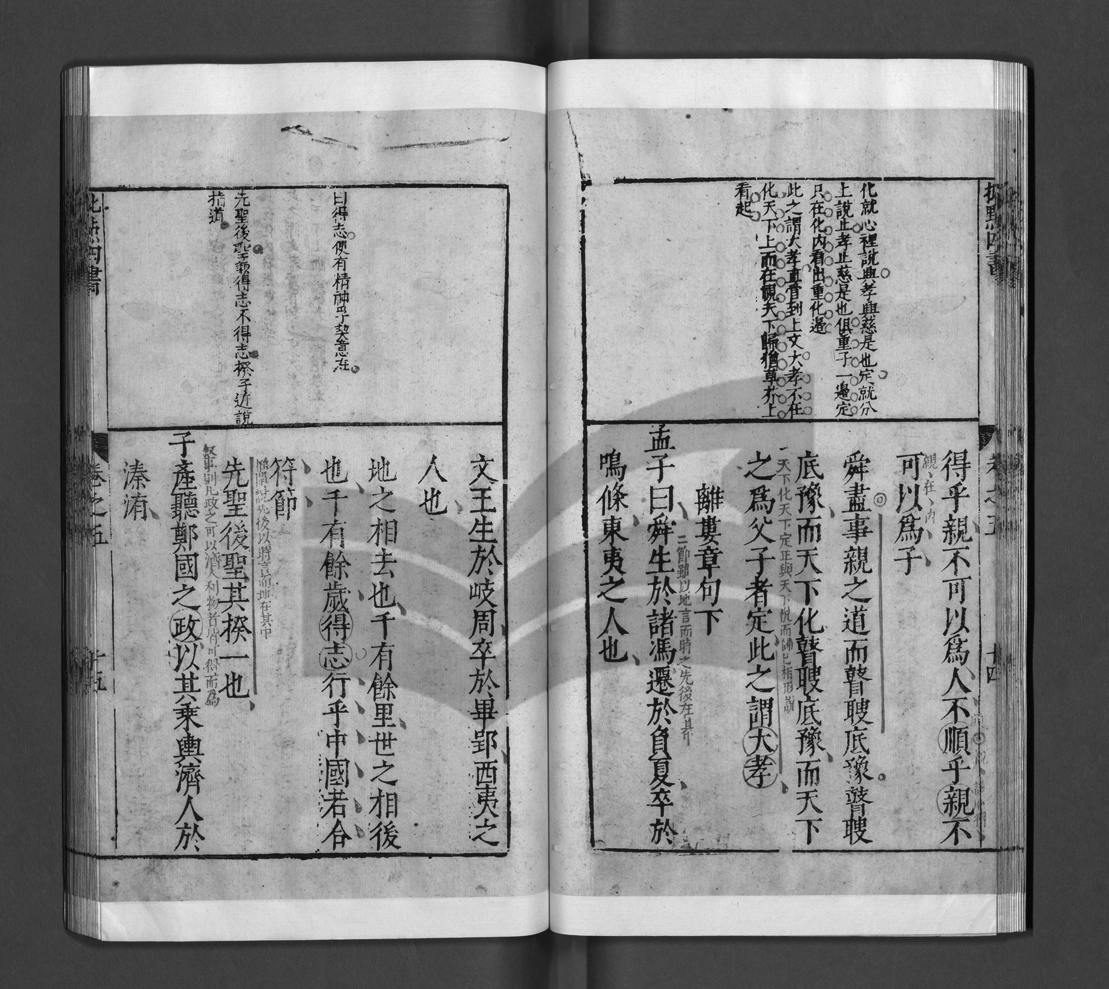 化就心裡說與孝與慈是也定就分
上說止孝止慈是也俱重子一邊定
只在化內看出重化邊
此之謂大孝直管到上文大孝不在
化天下上而在視天下歸猶草芥上
看起
得乎親不可以為人不順乎親不
可以為子
舜盡事親之道而瞽瞍底豫瞽瞍
底豫而天下化瞽瞍底豫而天下
之為父子者定此之謂大孝
離婁章句下
孟子曰舜生於諸馮遷於負夏卒於
二節雖以地言而時之先後在其中
鳴條東夷之人也
卷之五
十四
曰得志便有精神學契意在
先聖後聖最得志不得志揆字近說
指道
文王生於岐周卒於畢郢西夷之
人也
地之相去也千有餘里世之相後
也千有餘歲得志行乎中國若合
符節
先聖後聖其揆一也
子產聽鄭國之政以其乘輿濟人於
溱洧
批點四書
卷之五
十五